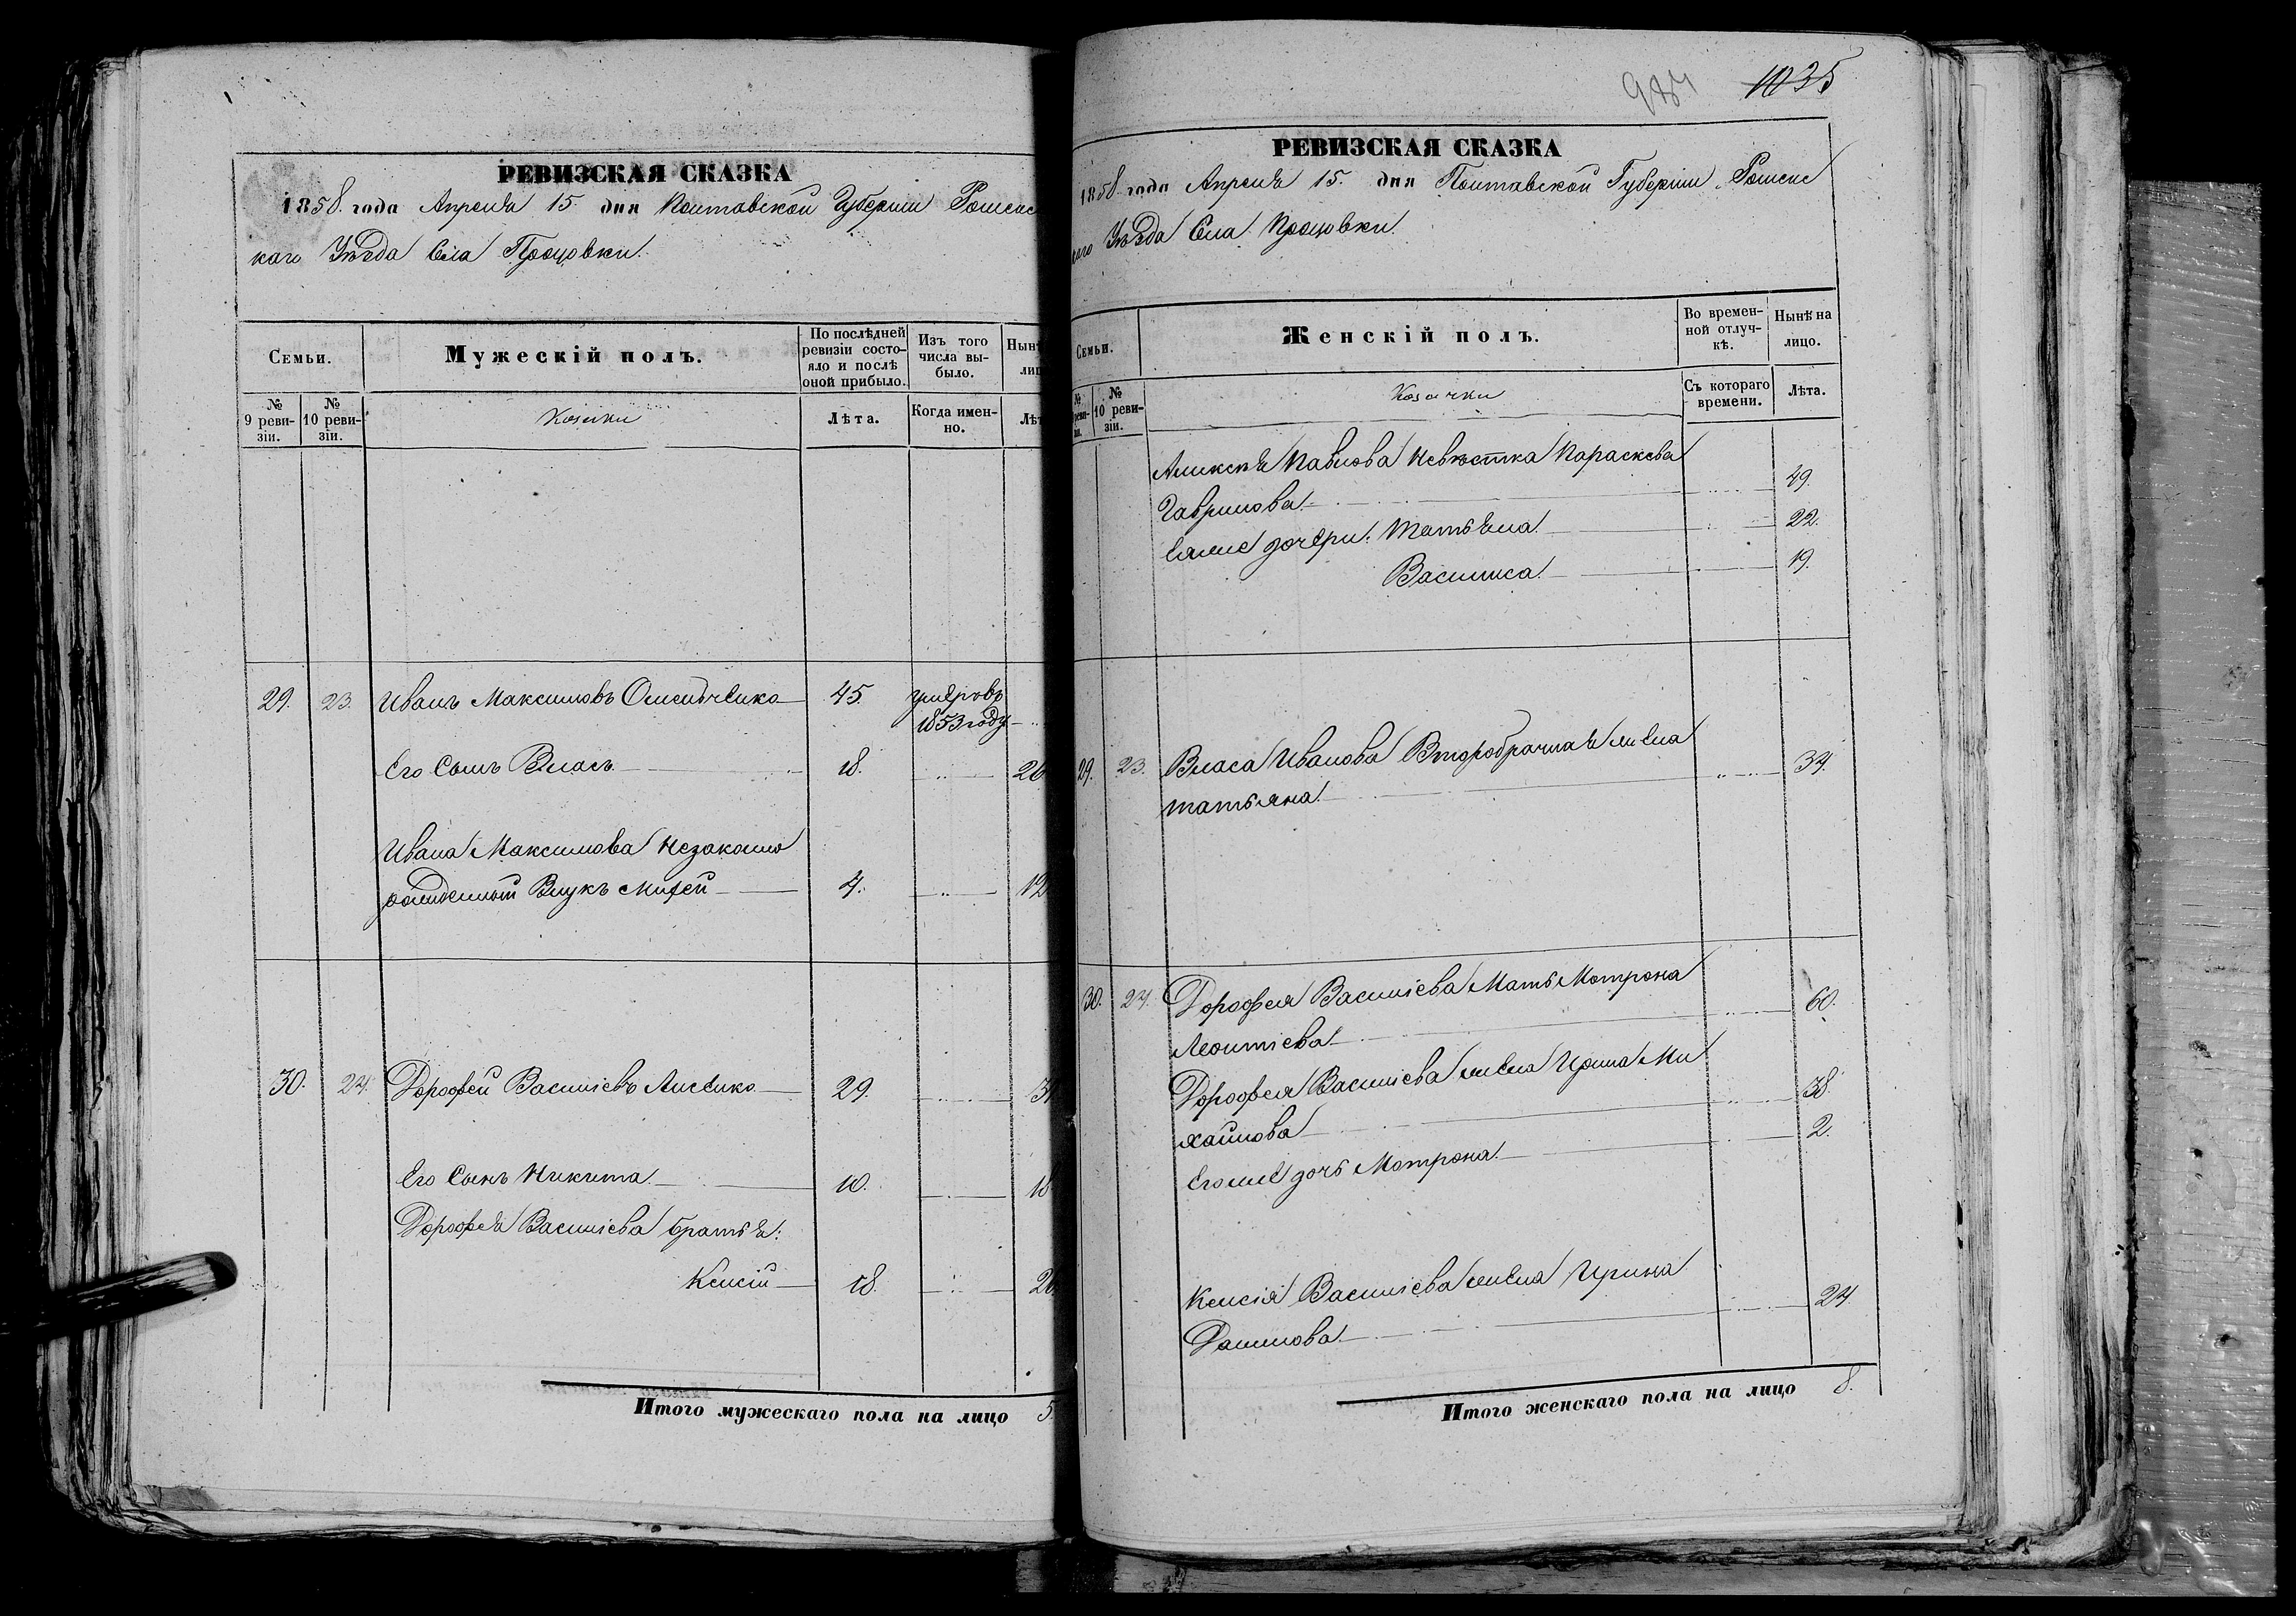 РЕВИЗСКАЯ СКАЗКА
1858. года Апреля 15. дня Полтавской Губерніи Роменс
каго Уѣзда Села Процовки.
Семьи.
Мужескій полъ.
По послѣдней ревизіи состояло и послѣ оной прибыло.
Изъ того числа выбыло.
Нын
лиц
№ 9 ревизіи.
№ 10 ревизіи.
Козаки
Лѣта.
Когда именно.
Лѣт
29. 23. Иванъ Максимовъ 45. умеръ въ
1853 году
Его Сынъ Власъ 18. 26
Ивана Максимова Незаконно
рожденный Внукъ Мифей 4. 12
30. 24. Дорофей Василіевъ Лисенко 29. 3
Его Сынъ Никита 10. 18
Дорофея Василіева братья:
18. 26
Итого мужескаго пола на лицо 5.
984 1035
РЕВИЗСКАЯ СКАЗКА
1858 года Апреля 15. дня Полтавской Губерніи Роменс
каго Уѣзда Села Процовки.
Семьи.
Женскій полъ.
Во временной отлучкѣ.
Нынѣ на лицо.
№ 10 ревизіи.
Козачки
Съ котораго времени.
Лѣта.
Алексѣя Павлова Невѣстка Параскева
Гаврилова 49.
Еяже дочери: Татьяна 22.
Василиса 19.
29. 23. Власа Иванова Второбрачная жена
Татьяна 34.
30. 24. Дорофея Василіева Мать Мотрона
Леонтіева 60.
Дорофея Василіева жена Ирина Ми
хайлова 38.
Егоже дочь Мотрона 2.
Василіева жена Ирина
Данилова 24.
Итого женскаго пола на лицо 8.